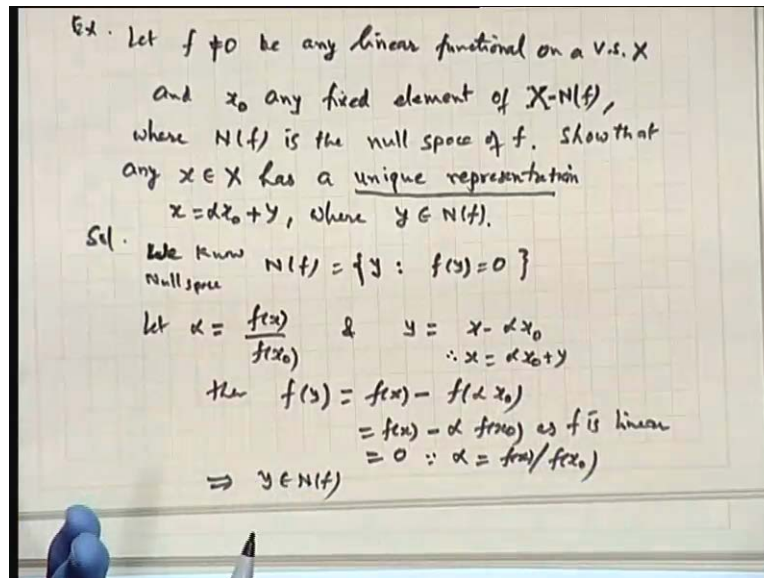 Ex. Let f ≠ 0 be any linear functional on a V.S. X
and x₀ any fixed element of X-N(f),
where N(f) is the null space of f. Show that
any x ∈ X has a unique representation
x = αx₀ + y, where y ∈ N(f).
Sol. We know N(f) = {y : f(y) = 0}
Null space
Let α = f(x)/f(x₀) & y = x - αx₀
∴ x = αx₀ + y
then f(y) = f(x) - f(αx₀)
= f(x) - α f(x₀) as f is linear
= 0 ∵ α = f(x)/f(x₀)
⇒ y ∈ N(f)